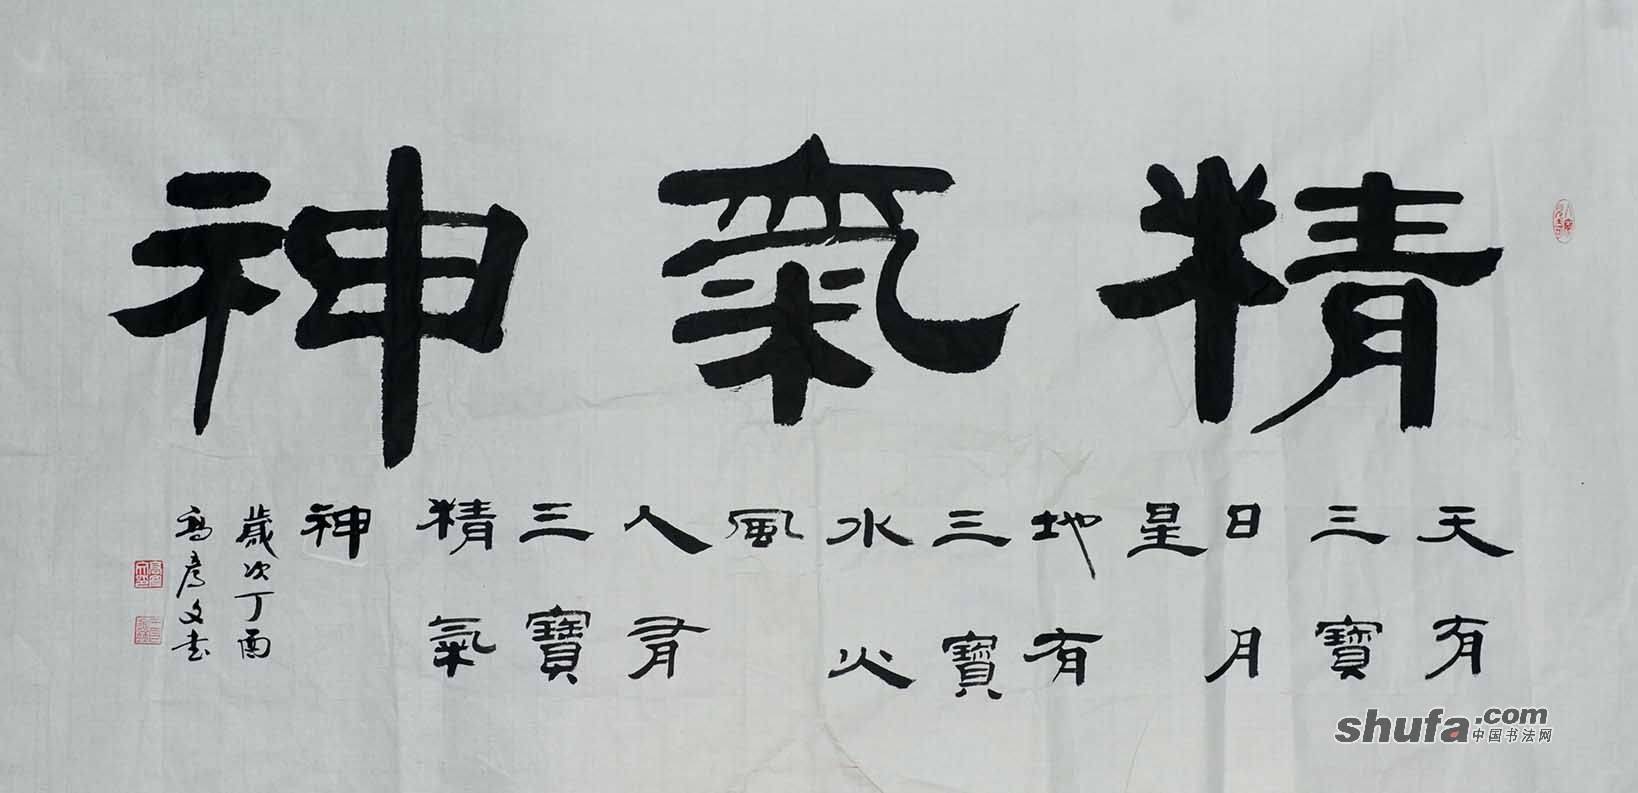 精氣神
天有
三寶
日月
星
地有
三寶
水火
風
人有
三寶
精氣
神
歲次丁酉
彥文书
shufa.com
中国书法网